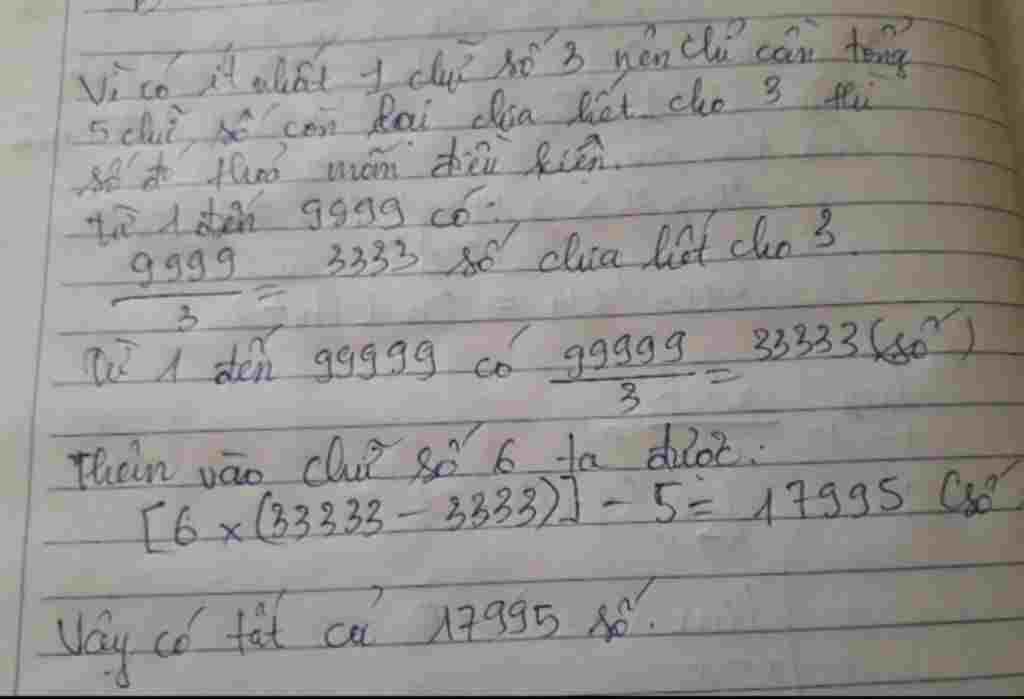 Vì có ít nhất 1 chữ số 3 nên chỉ cần tổng
5 chữ số còn lại chia hết cho 3 thì
số đó thoả mãn điều kiện.
từ 1 đến 9999 có:
9999/3 = 3333 số chia hết cho 3
Từ 1 đến 99999 có 99999/3 = 33333 (số)
Thêm vào chữ số 6 ta được:
[6 x (33333 - 3333)] - 5 = 17995 (số
Vậy có tất cả 17995 số.